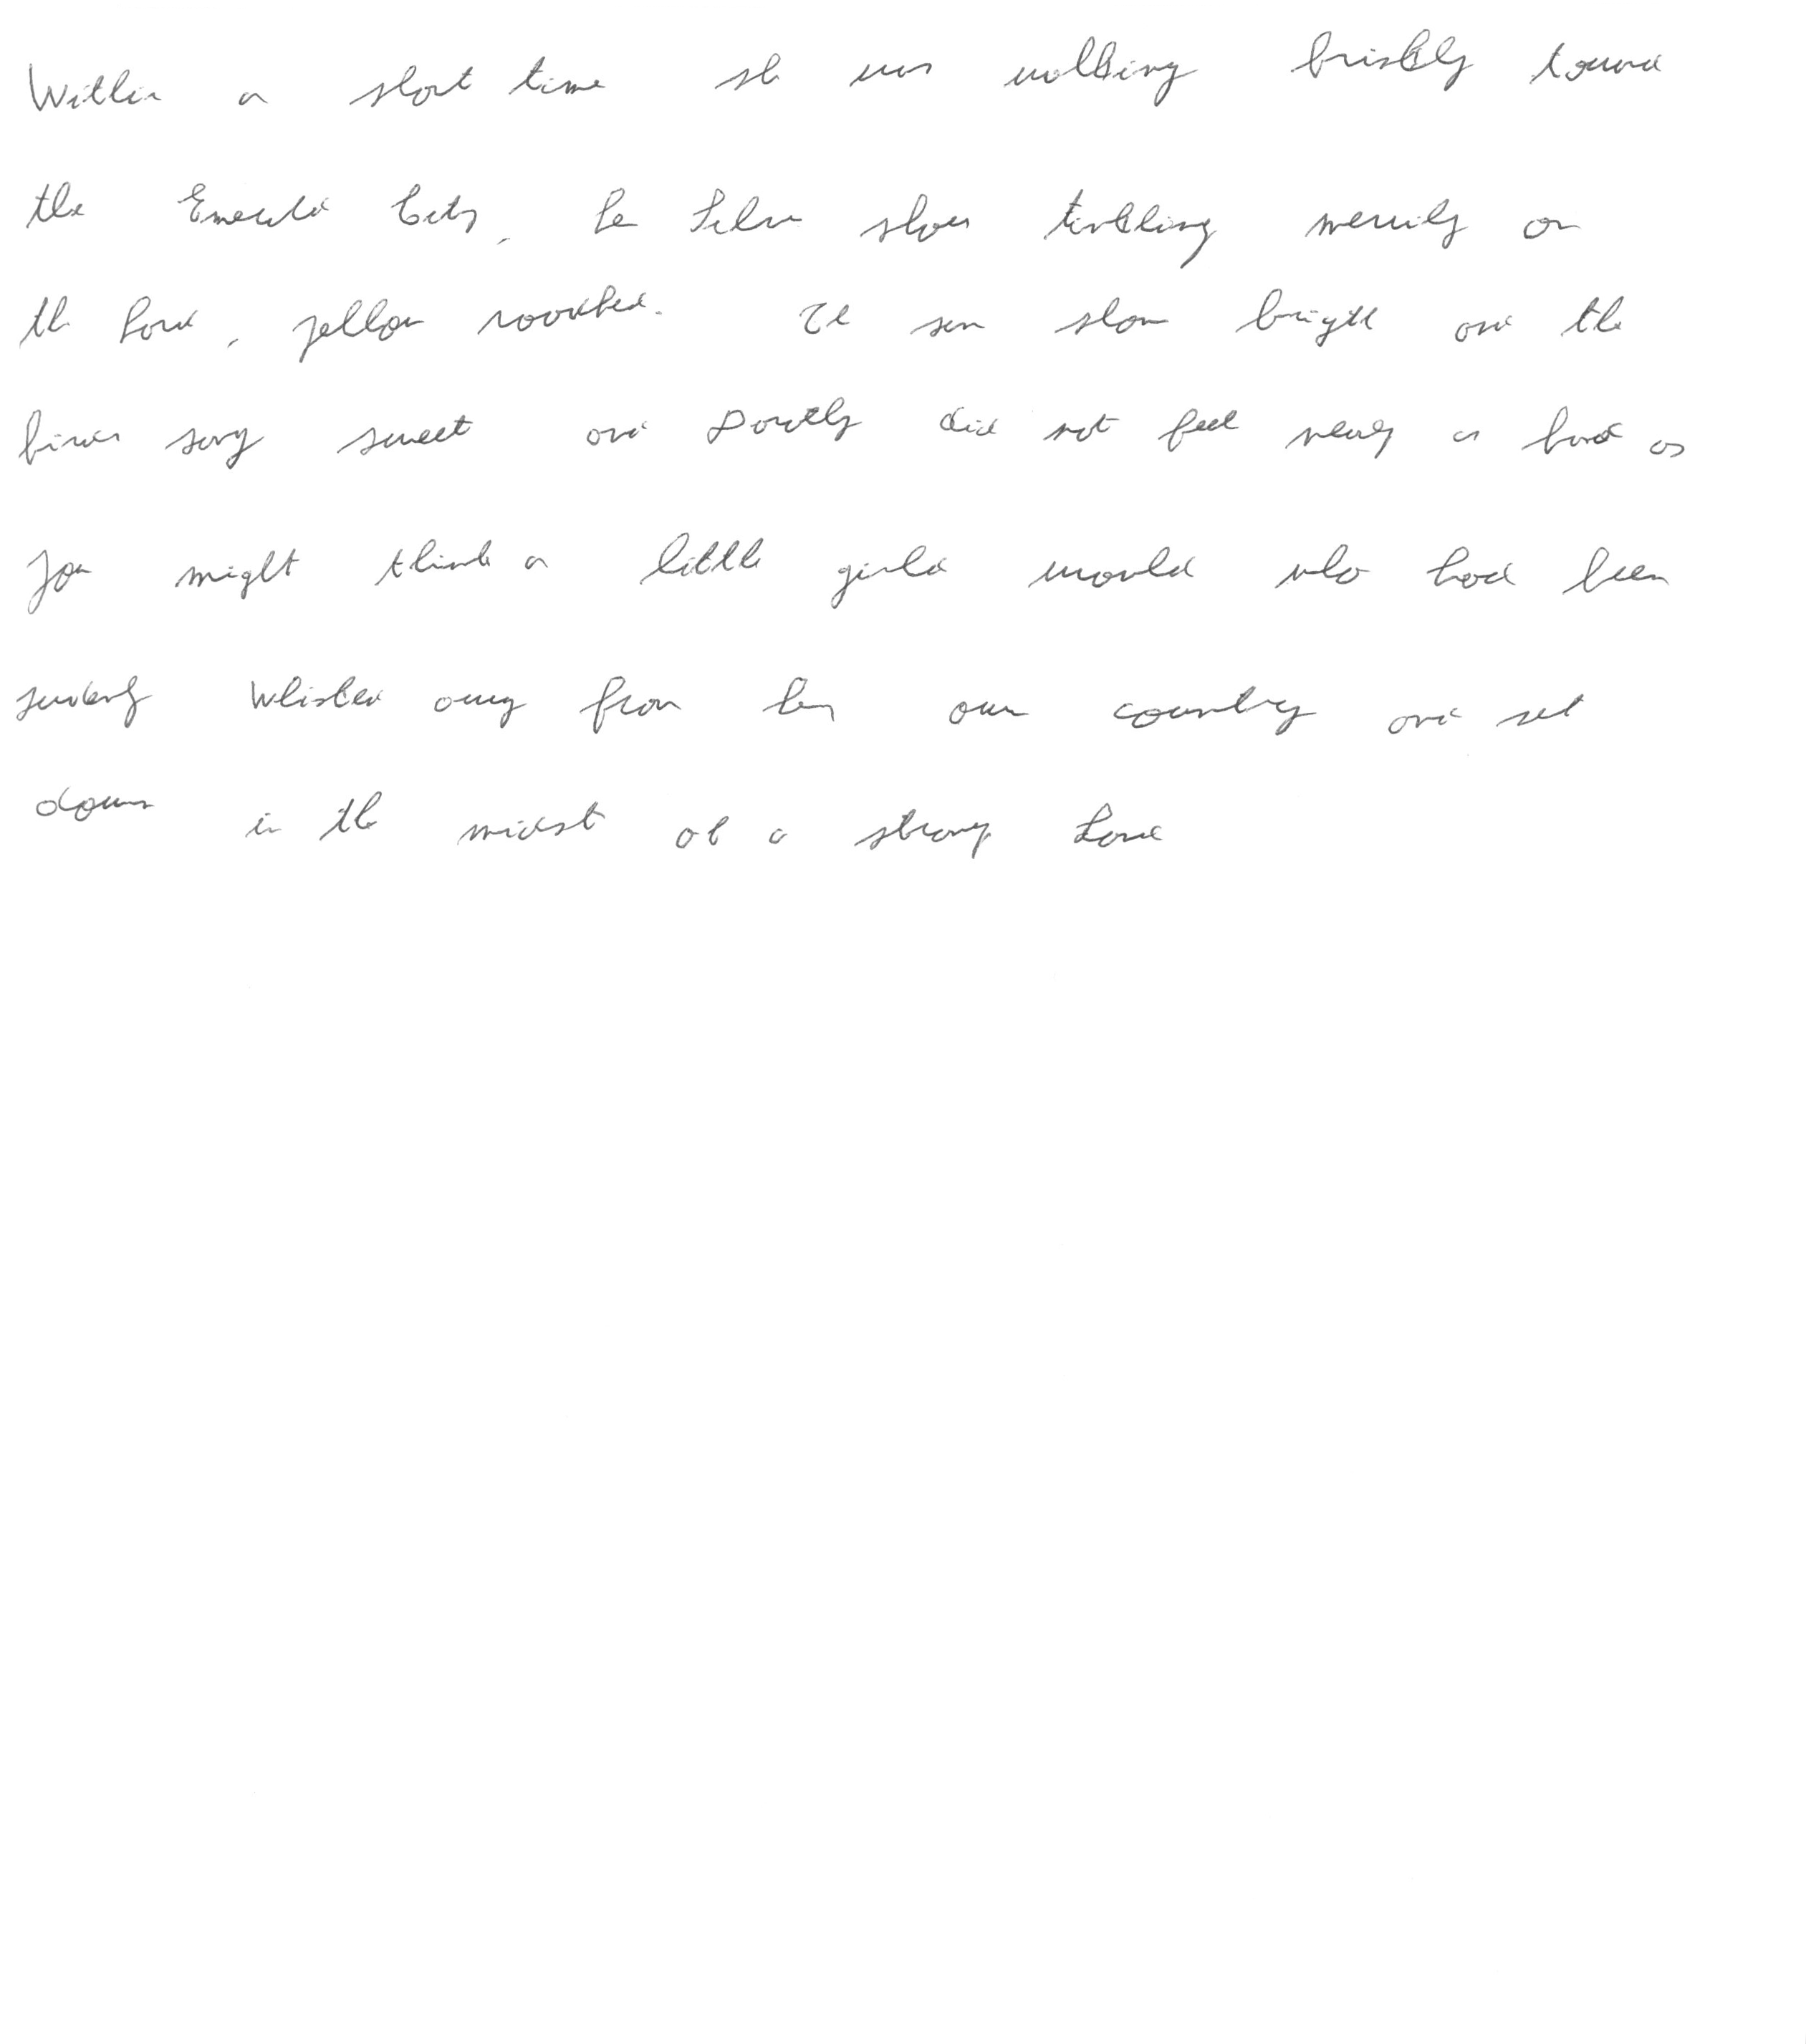 Within a short time she was walking briskly toward
the Emerald City, her Silver shoes tinkling merrily on
the hard, yellow roadbed. The sun shone bright and the
birds sang sweet and Dorothy did not feel nearly as bad as
you might think a little girl would who had been
suddenly whisked away from her own country and set
down in the midst of a strange land